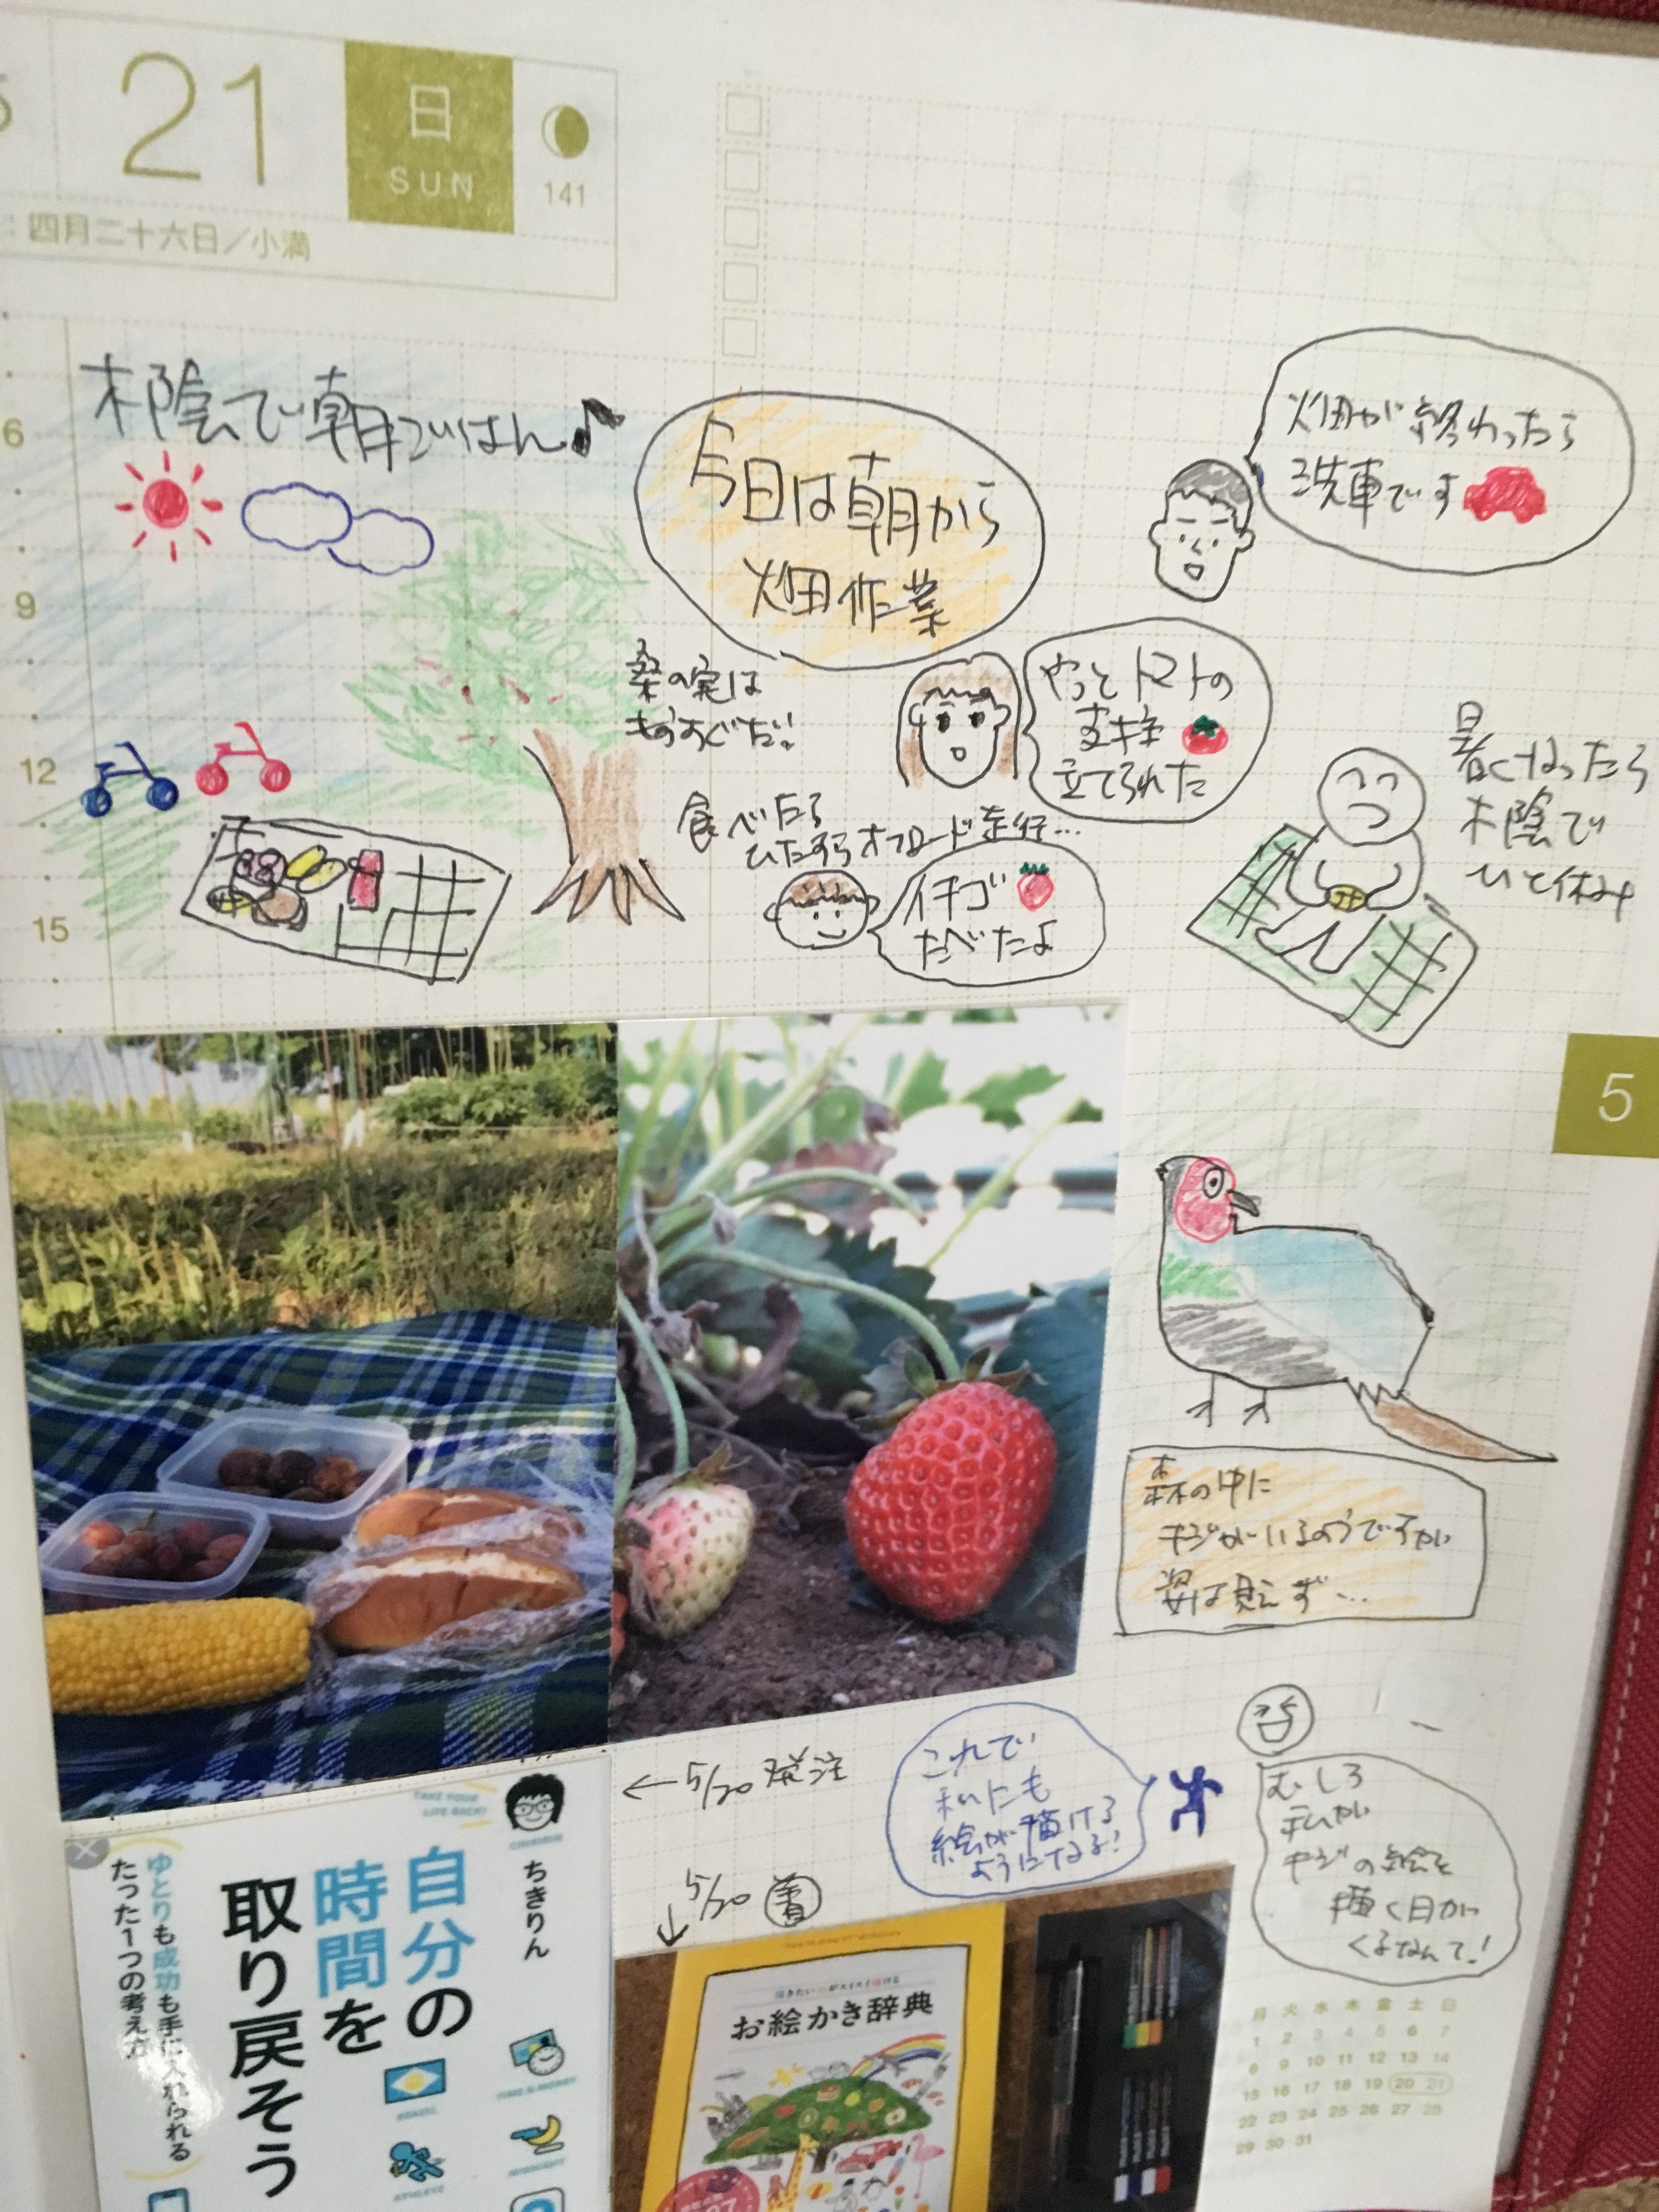 21
日
SUN
141
四月二十六日／小満
木陰で朝ごはん♪
今日は朝から
畑作業
畑が終わったら
洗車です
桑の実は
もうすぐだ!
やっとトマトの
支柱
立てられた
暑くなったら
木陰で
ひと休み
食べたら
ひたすらオフロード走行…
イチゴ
たべたよ
6
9
12
15
5
森の中に
キジがいるのうですが
姿は見えず…
←5/20 発注
これで
私にも
絵が描ける
ようになる!
むしろ
私が
キジの絵を
描く日が
くるなんて!
↓5/20 着
TAKE YOUR
LIFE BACK!
ちきりん
自分の
時間を
取り戻そう
ゆとりも成功も手に入れられる
たった1つの考え方
描きたい がスイスイ描ける
お絵かき辞典
月 火 水 木 金 土 日
1 2 3 4 5 6 7
8 9 10 11 12 13 14
15 16 17 18 19 20 21
22 23 24 25 26 27 28
29 30 31